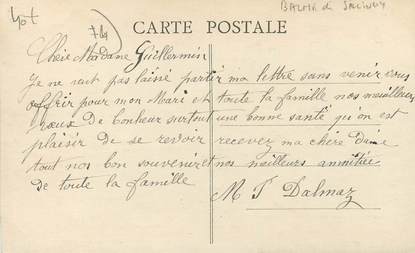 40t
74
BALME de SILLINGY
CARTE POSTALE
Cheie Madame Guillermin
Je ne veut pas laissé partir ma lettre sans venir vous
offrir pour mon Mari et toute la famille nos meilleurs
vœux De bonheur surtout une bonne santé qu'on est
plaisir de se revoir recevez ma chère Dame
tout nos bon souvenir et nos meilleurs amnitiée
de toute la famille
M J Dalmaz